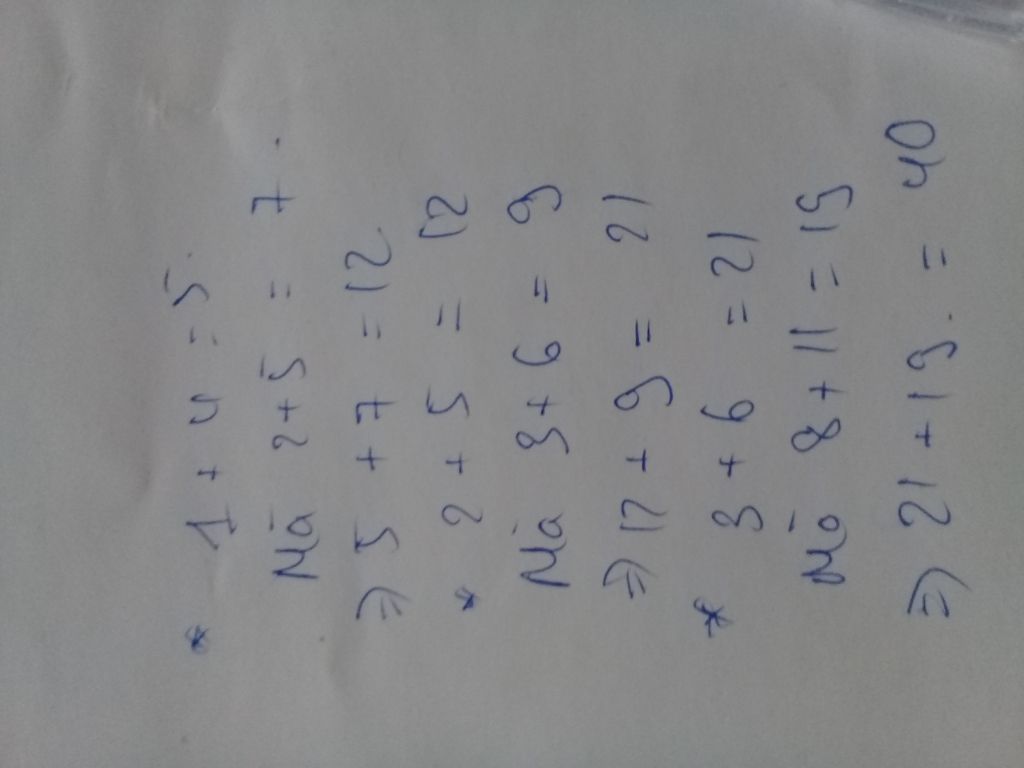 * 1 + 4 = 5.
Mà 2+5 = 7.
=> 5 + 7 = 12
* 2 + 5 = 12
Mà 3 + 6 = 9
=> 12 + 9 = 21
* 3 + 6 = 21
Mà 8 + 11 = 19
=> 21 + 19. = 40